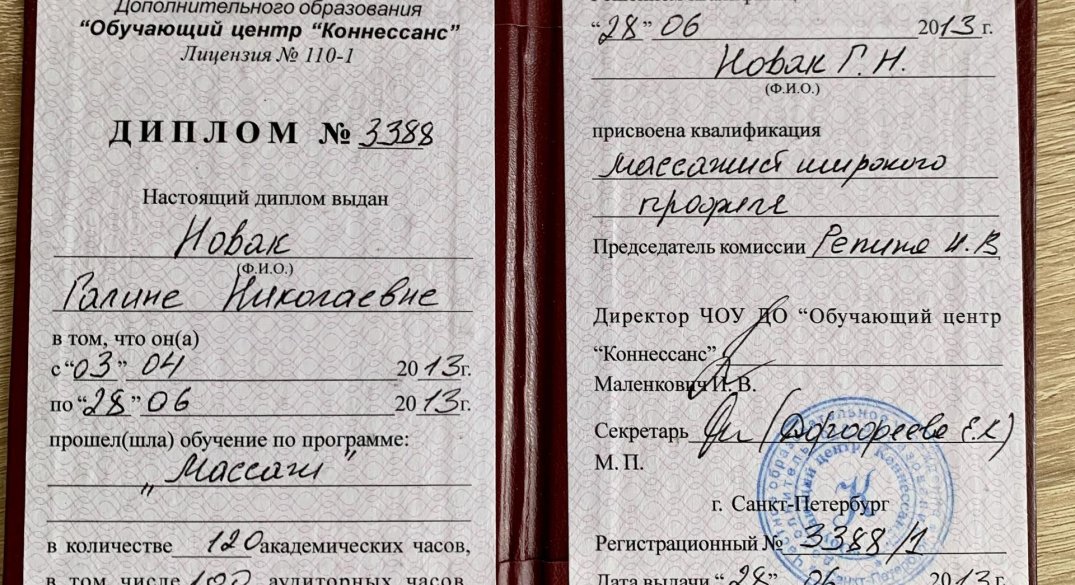 Дополнительного образования
"Обучающий центр "Коннессанс"
Лицензия № 110-1
ДИПЛОМ № 3388
Настоящий диплом выдан
Новак
(Ф.И.О.)
Галине Николаевне
в том, что он(а)
с "03" 04 2013г.
по "28" 06 2013г.
прошел(шла) обучение по программе:
„Массаж"
в количестве 120 академических часов,
в том числе 100 аудиторных часов
"28" 06 2013 г.
Новак Г. Н.
(Ф.И.О.)
присвоена квалификация
массажист широкого
профиля
Председатель комиссии Репина И. В
Директор ЧОУ ДО "Обучающий центр
"Коннессанс"
Маленкович И. В.
Секретарь (Дорофеева Е.К)
М. П.
г. Санкт-Петербург
Регистрационный № 3388/1
Дата выдачи "28" 06 2013г.